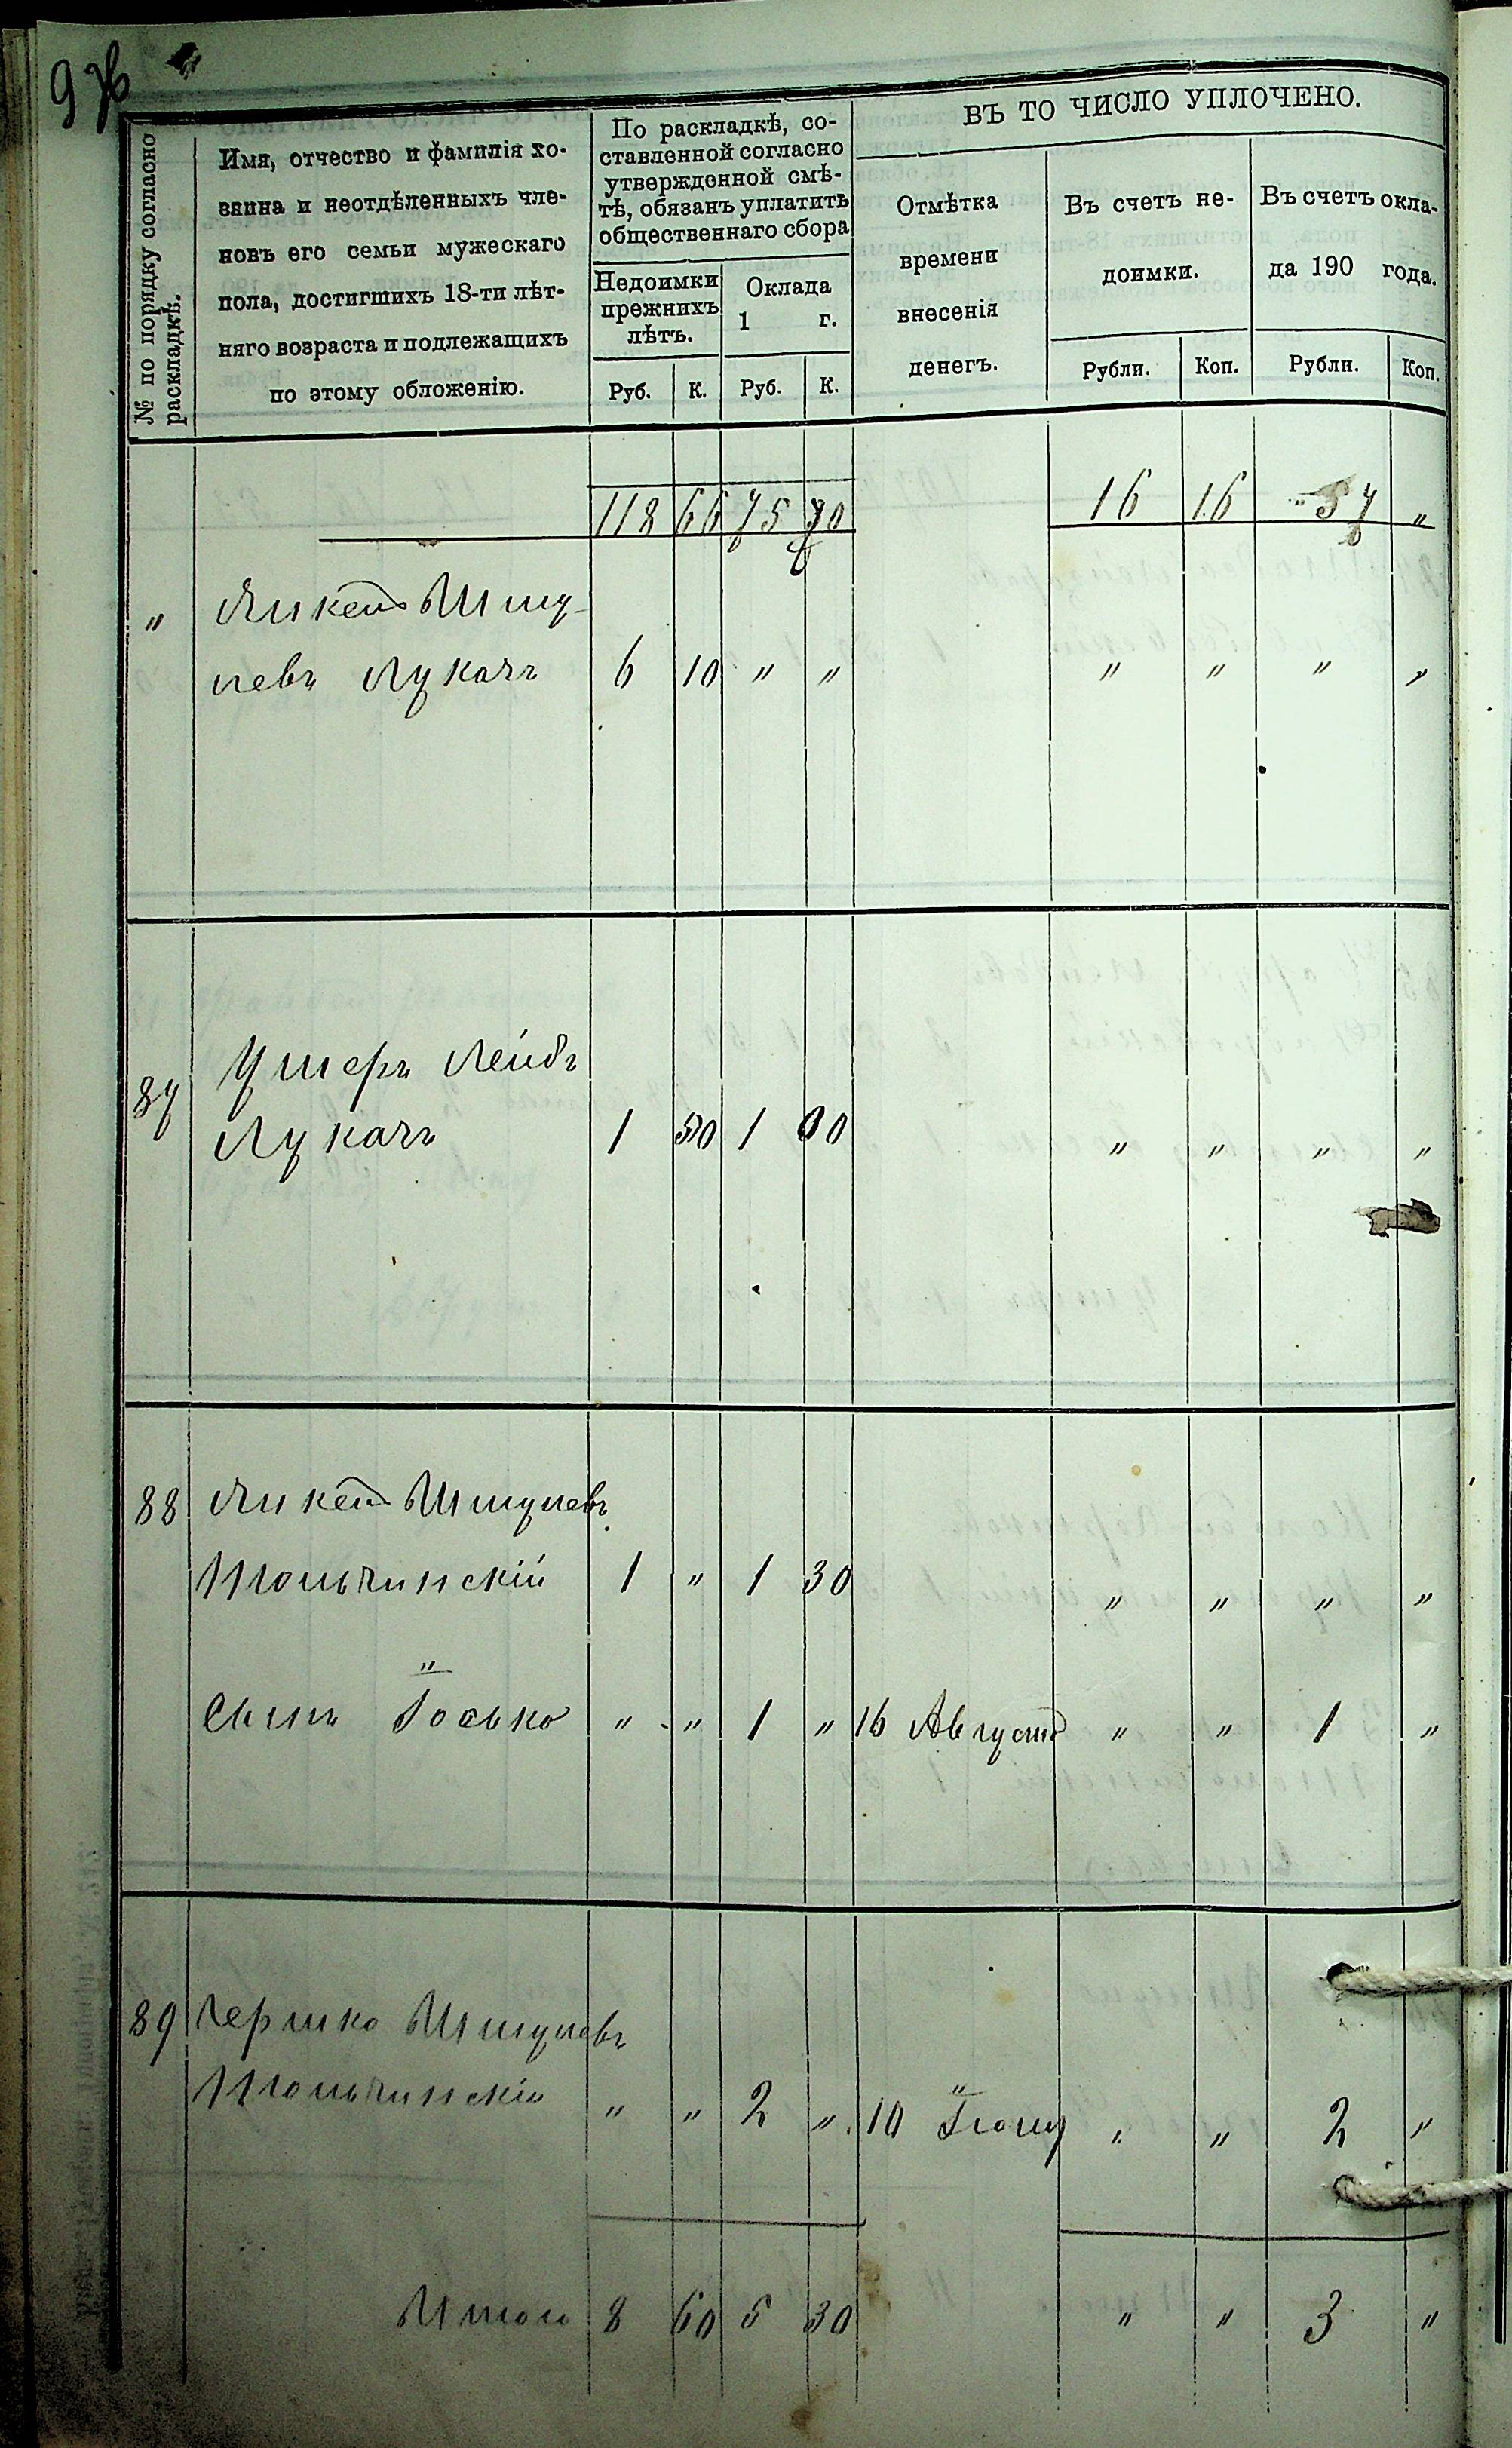 97
№ по порядку согласно раскладкѣ.
Имя, отчество и фамилія хо-
зяина и неотдѣленныхъ чле-
новъ его семьи мужескаго
пола, достигшихъ 18-ти лѣт-
няго возраста и подлежащихъ
по этому обложенію.
По раскладкѣ, со-
ставленной согласно
утвержденной смѣ-
тѣ, обязанъ уплатить
общественнаго сбора
Недоимки прежнихъ лѣтъ.
Оклада 1 г.
Руб. К. Руб. К.
ВЪ ТО ЧИСЛО УПЛОЧЕНО.
Отмѣтка
времени
внесенія
денегъ.
Въ счетъ не-
доимки.
Въ счетъ окла-
да 190 года.
Рубли. Коп. Рубли. Коп.
118 66 75 16 16 57 „
„ Янкель Шму-
левъ Лукачъ 6 10 „ „ „ „ „ „
87 Ушеръ Лейбъ
Лукачъ 1 50 1 „ „ „ „
88 Янкель Шмулевъ
Тольчинскій 1 „ 1 30 „ „ „ „
Сынъ Іосько „ „ 1 „ 16 Август „ „ 1 „
89 Гершко Шмулевъ
Тольчинскій „ „ 2 „ 10 Іюня „ „ 2 „
Итого 8 60 5 30 „ „ 3 „